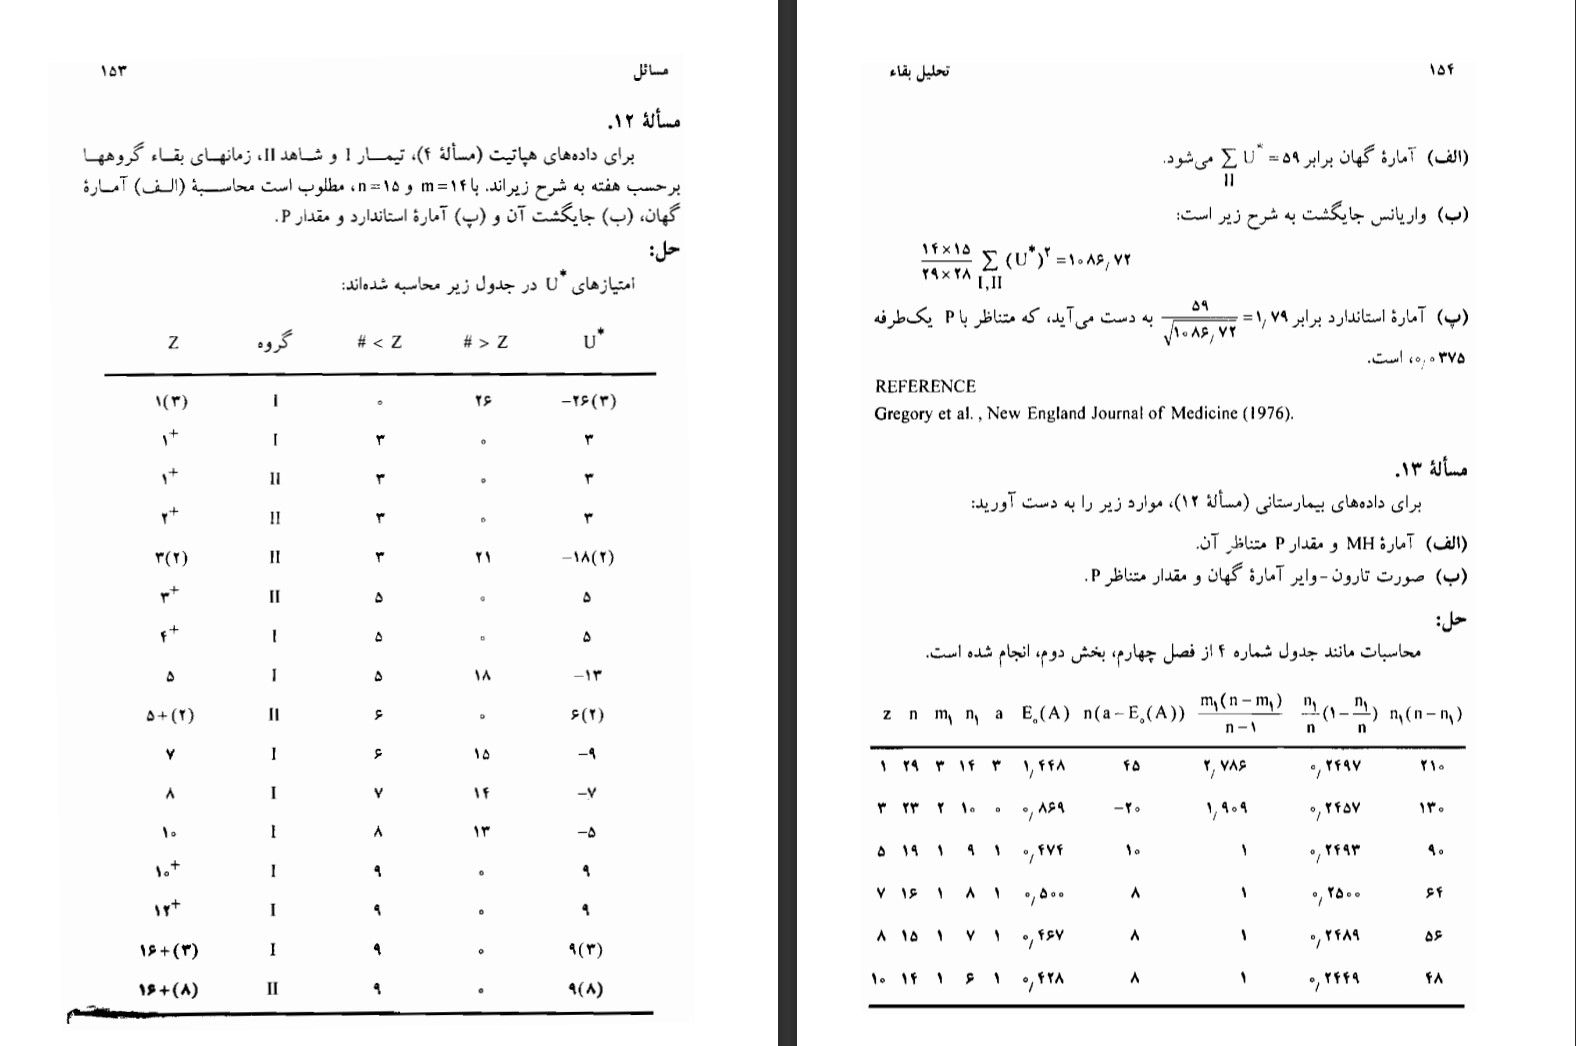 مسائل ۱۵۳
مسألهٔ ۱۲.
برای داده‌های هپاتیت (مسألهٔ ۴)، تیمار I و شاهد II، زمانهای بقاء گروهها
برحسب هفته به شرح زیراند. با m=۱۴ و n=۱۵، مطلوب است محاسبهٔ (الف) آمارهٔ
گهان، (ب) جایگشت آن و (پ) آمارهٔ استاندارد و مقدار P.
حل:
امتیازهای U* در جدول زیر محاسبه شده‌اند:
Z گروه # < Z # > Z U*
۱(۳) I ۰ ۲۶ −۲۶(۳)
۱+ I ۳ ۰ ۳
۱+ II ۳ ۰ ۳
۲+ II ۳ ۰ ۳
۳(۲) II ۳ ۲۱ −۱۸(۲)
۳+ II ۵ ۰ ۵
۴+ I ۵ ۰ ۵
۵ I ۵ ۱۸ −۱۳
۵+(۲) II ۶ ۰ ۶(۲)
۷ I ۶ ۱۵ −۹
۸ I ۷ ۱۴ −۷
۱۰ I ۸ ۱۳ −۵
۱۰+ I ۹ ۰ ۹
۱۲+ I ۹ ۰ ۹
۱۶+(۳) I ۹ ۰ ۹(۳)
۱۶+(۸) II ۹ ۰ ۹(۸)
۱۵۴ تحلیل بقاء
(الف) آمارهٔ گهان برابر ۵۹= *U ∑ می‌شود.
II
(ب) واریانس جایگشت به شرح زیر است:
۱۴×۱۵
۲۹×۲۸ ∑ (U*)۲ =۱۰۸۶٫۷۲
I,II
(پ) آمارهٔ استاندارد برابر ۱٫۷۹= ۵۹/√۱۰۸۶٫۷۲ به دست می‌آید، که متناظر با P یک‌طرفه
۰٫۰۳۷۵، است.
REFERENCE
Gregory et al. , New England Journal of Medicine (1976).
مسألهٔ ۱۳.
برای داده‌های بیمارستانی (مسألهٔ ۱۲)، موارد زیر را به دست آورید:
(الف) آمارهٔ MH و مقدار P متناظر آن.
(ب) صورت تارون-وایر آمارهٔ گهان و مقدار متناظر P.
حل:
محاسبات مانند جدول شماره ۴ از فصل چهارم، بخش دوم، انجام شده است.
z n m₁ n₁ a E₀(A) n(a−E₀(A)) m₁(n−m₁)/n−۱ n₁/n(۱−n₁/n) n₁(n−n₁)
۱ ۲۹ ۳ ۱۴ ۳ ۱٫۴۴۸ ۴۵ ۲٫۷۸۶ ۰٫۲۴۹۷ ۲۱۰
۳ ۲۳ ۲ ۱۰ ۰ ۰٫۸۶۹ −۲۰ ۱٫۹۰۹ ۰٫۲۴۵۷ ۱۳۰
۵ ۱۹ ۱ ۹ ۱ ۰٫۴۷۴ ۱۰ ۱ ۰٫۲۴۹۳ ۹۰
۷ ۱۶ ۱ ۸ ۱ ۰٫۵۰۰ ۸ ۱ ۰٫۲۵۰۰ ۶۴
۸ ۱۵ ۱ ۷ ۱ ۰٫۴۶۷ ۸ ۱ ۰٫۲۴۸۹ ۵۶
۱۰ ۱۴ ۱ ۶ ۱ ۰٫۴۲۸ ۸ ۱ ۰٫۲۴۴۹ ۴۸